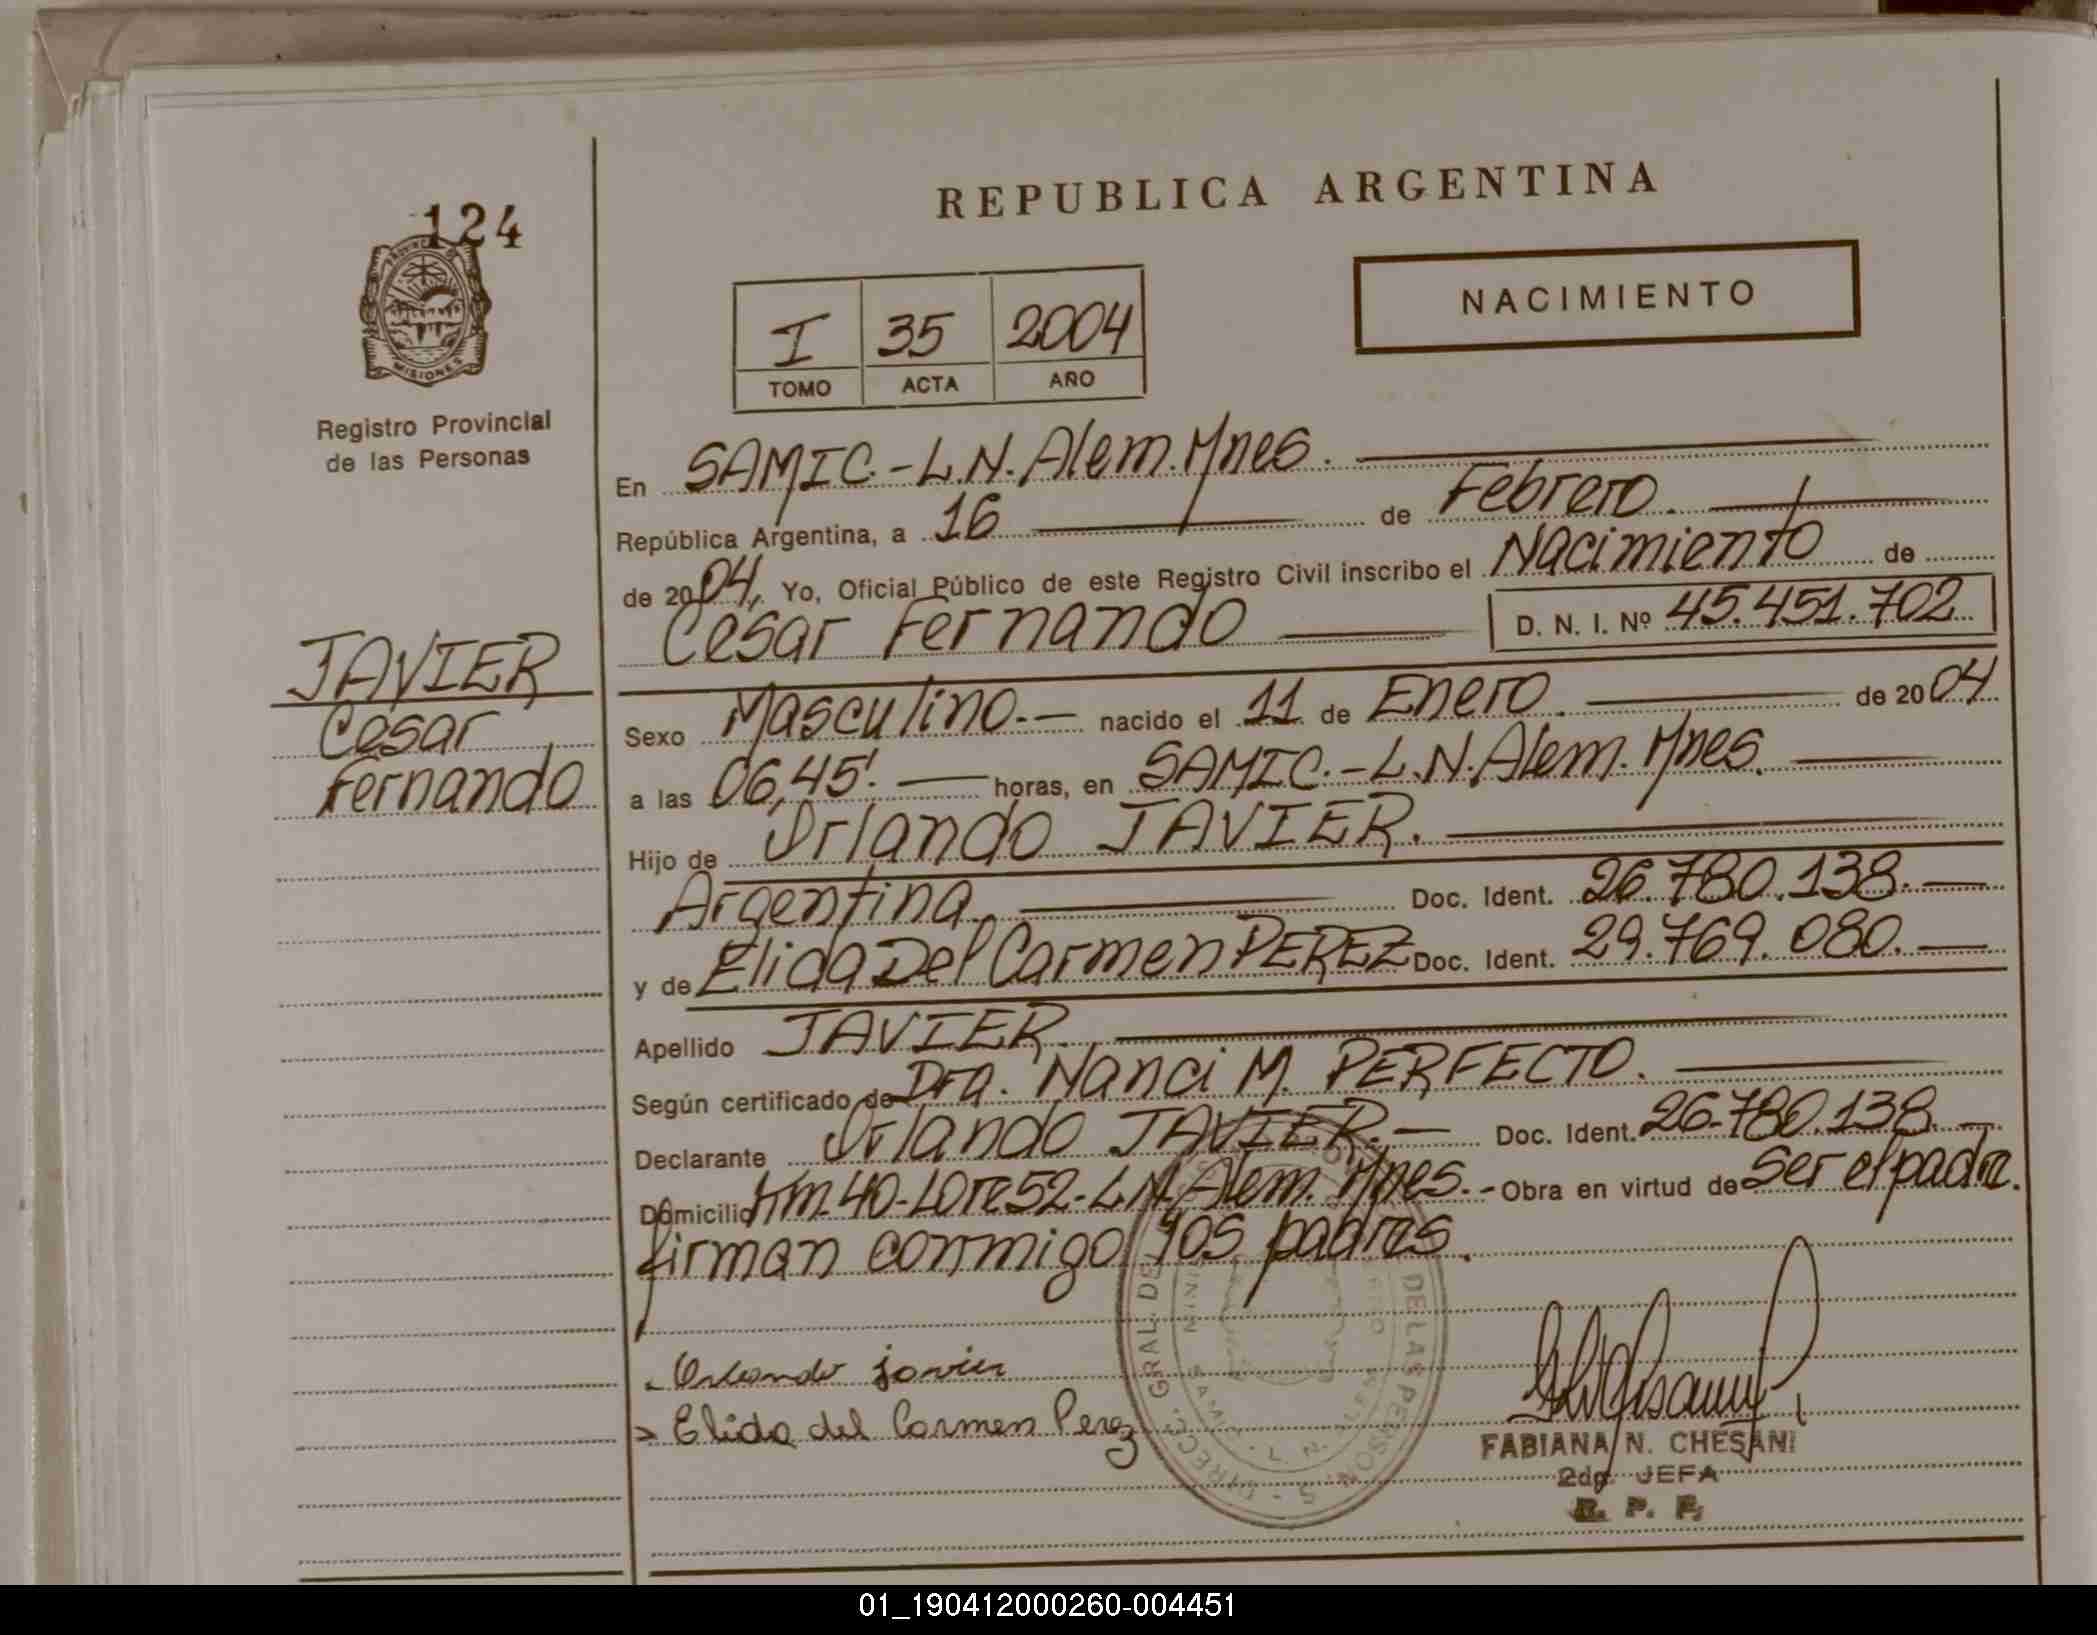 124
PROVINCIA DE MISIONES
Registro Provincial
de las Personas
REPUBLICA ARGENTINA
NACIMIENTO
I 35 2004
TOMO ACTA AÑO
En SAMIC.-L.N.Alem.Mnes.
República Argentina, a 16 de Febrero.
de 2004, Yo, Oficial Público de este Registro Civil inscribo el Nacimiento de
Cesar Fernando D. N. I. Nº 45.451.702
JAVIER
Cesar
Fernando
Sexo Masculino.- nacido el 11 de Enero. de 2004
a las 06,45'. horas, en SAMIC.-L.N.Alem.Mnes.
Hijo de Orlando JAVIER.
Argentina. Doc. Ident. 26.780.138.-
y de Elida Del Carmen PEREZ Doc. Ident. 29.769.080.-
Apellido JAVIER.
Según certificado de Dra. Nanci M. PERFECTO.
Declarante Orlando JAVIER.- Doc. Ident. 26.780.138.-
Domicilio Km.40-Lote52-L.N.Alem.Mnes.- Obra en virtud de Ser el padre.
firman conmigo los padres.
Orlando javier
Elida del Carmen Perez
FABIANA N. CHESANI
2da. JEFA
R. P. P.
01_190412000260-004451